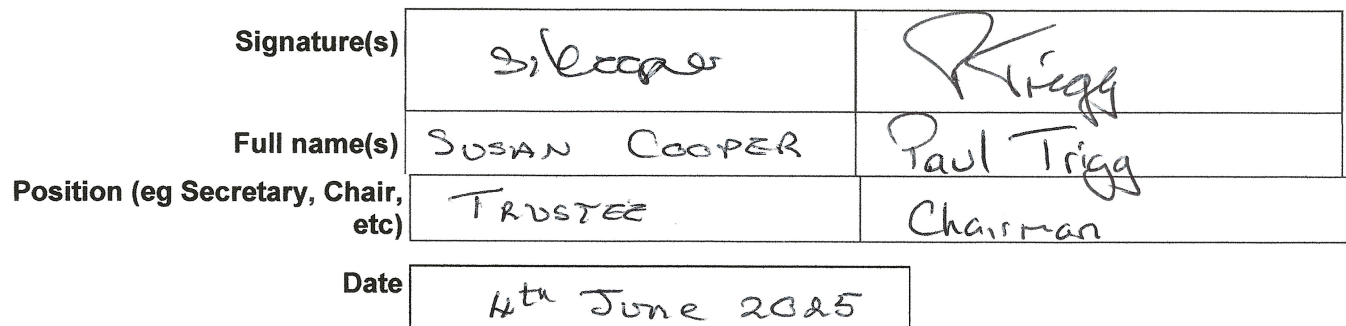 Signature(s) S. Cooper PTrigg
Full name(s) SUSAN COOPER Paul Trigg
Position (eg Secretary, Chair,
etc) TRUSTEE Chairman
Date 4th June 2025